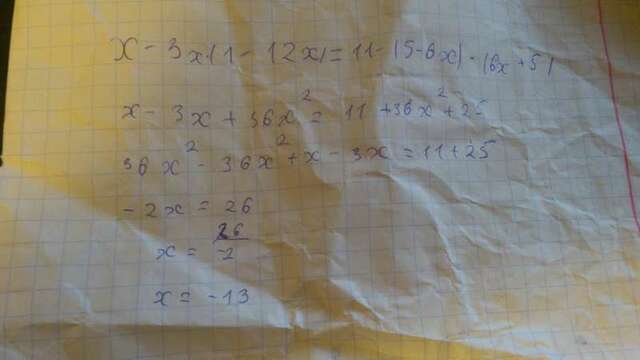 x - 3x(1 - 12x) = 11 - (5-6x) · (6x + 5)
x - 3x + 36x² = 11 + 36x² + 25
36x² - 36x² + x - 3x = 11 + 25
- 2x = 26
x = 26/-2
x = -13